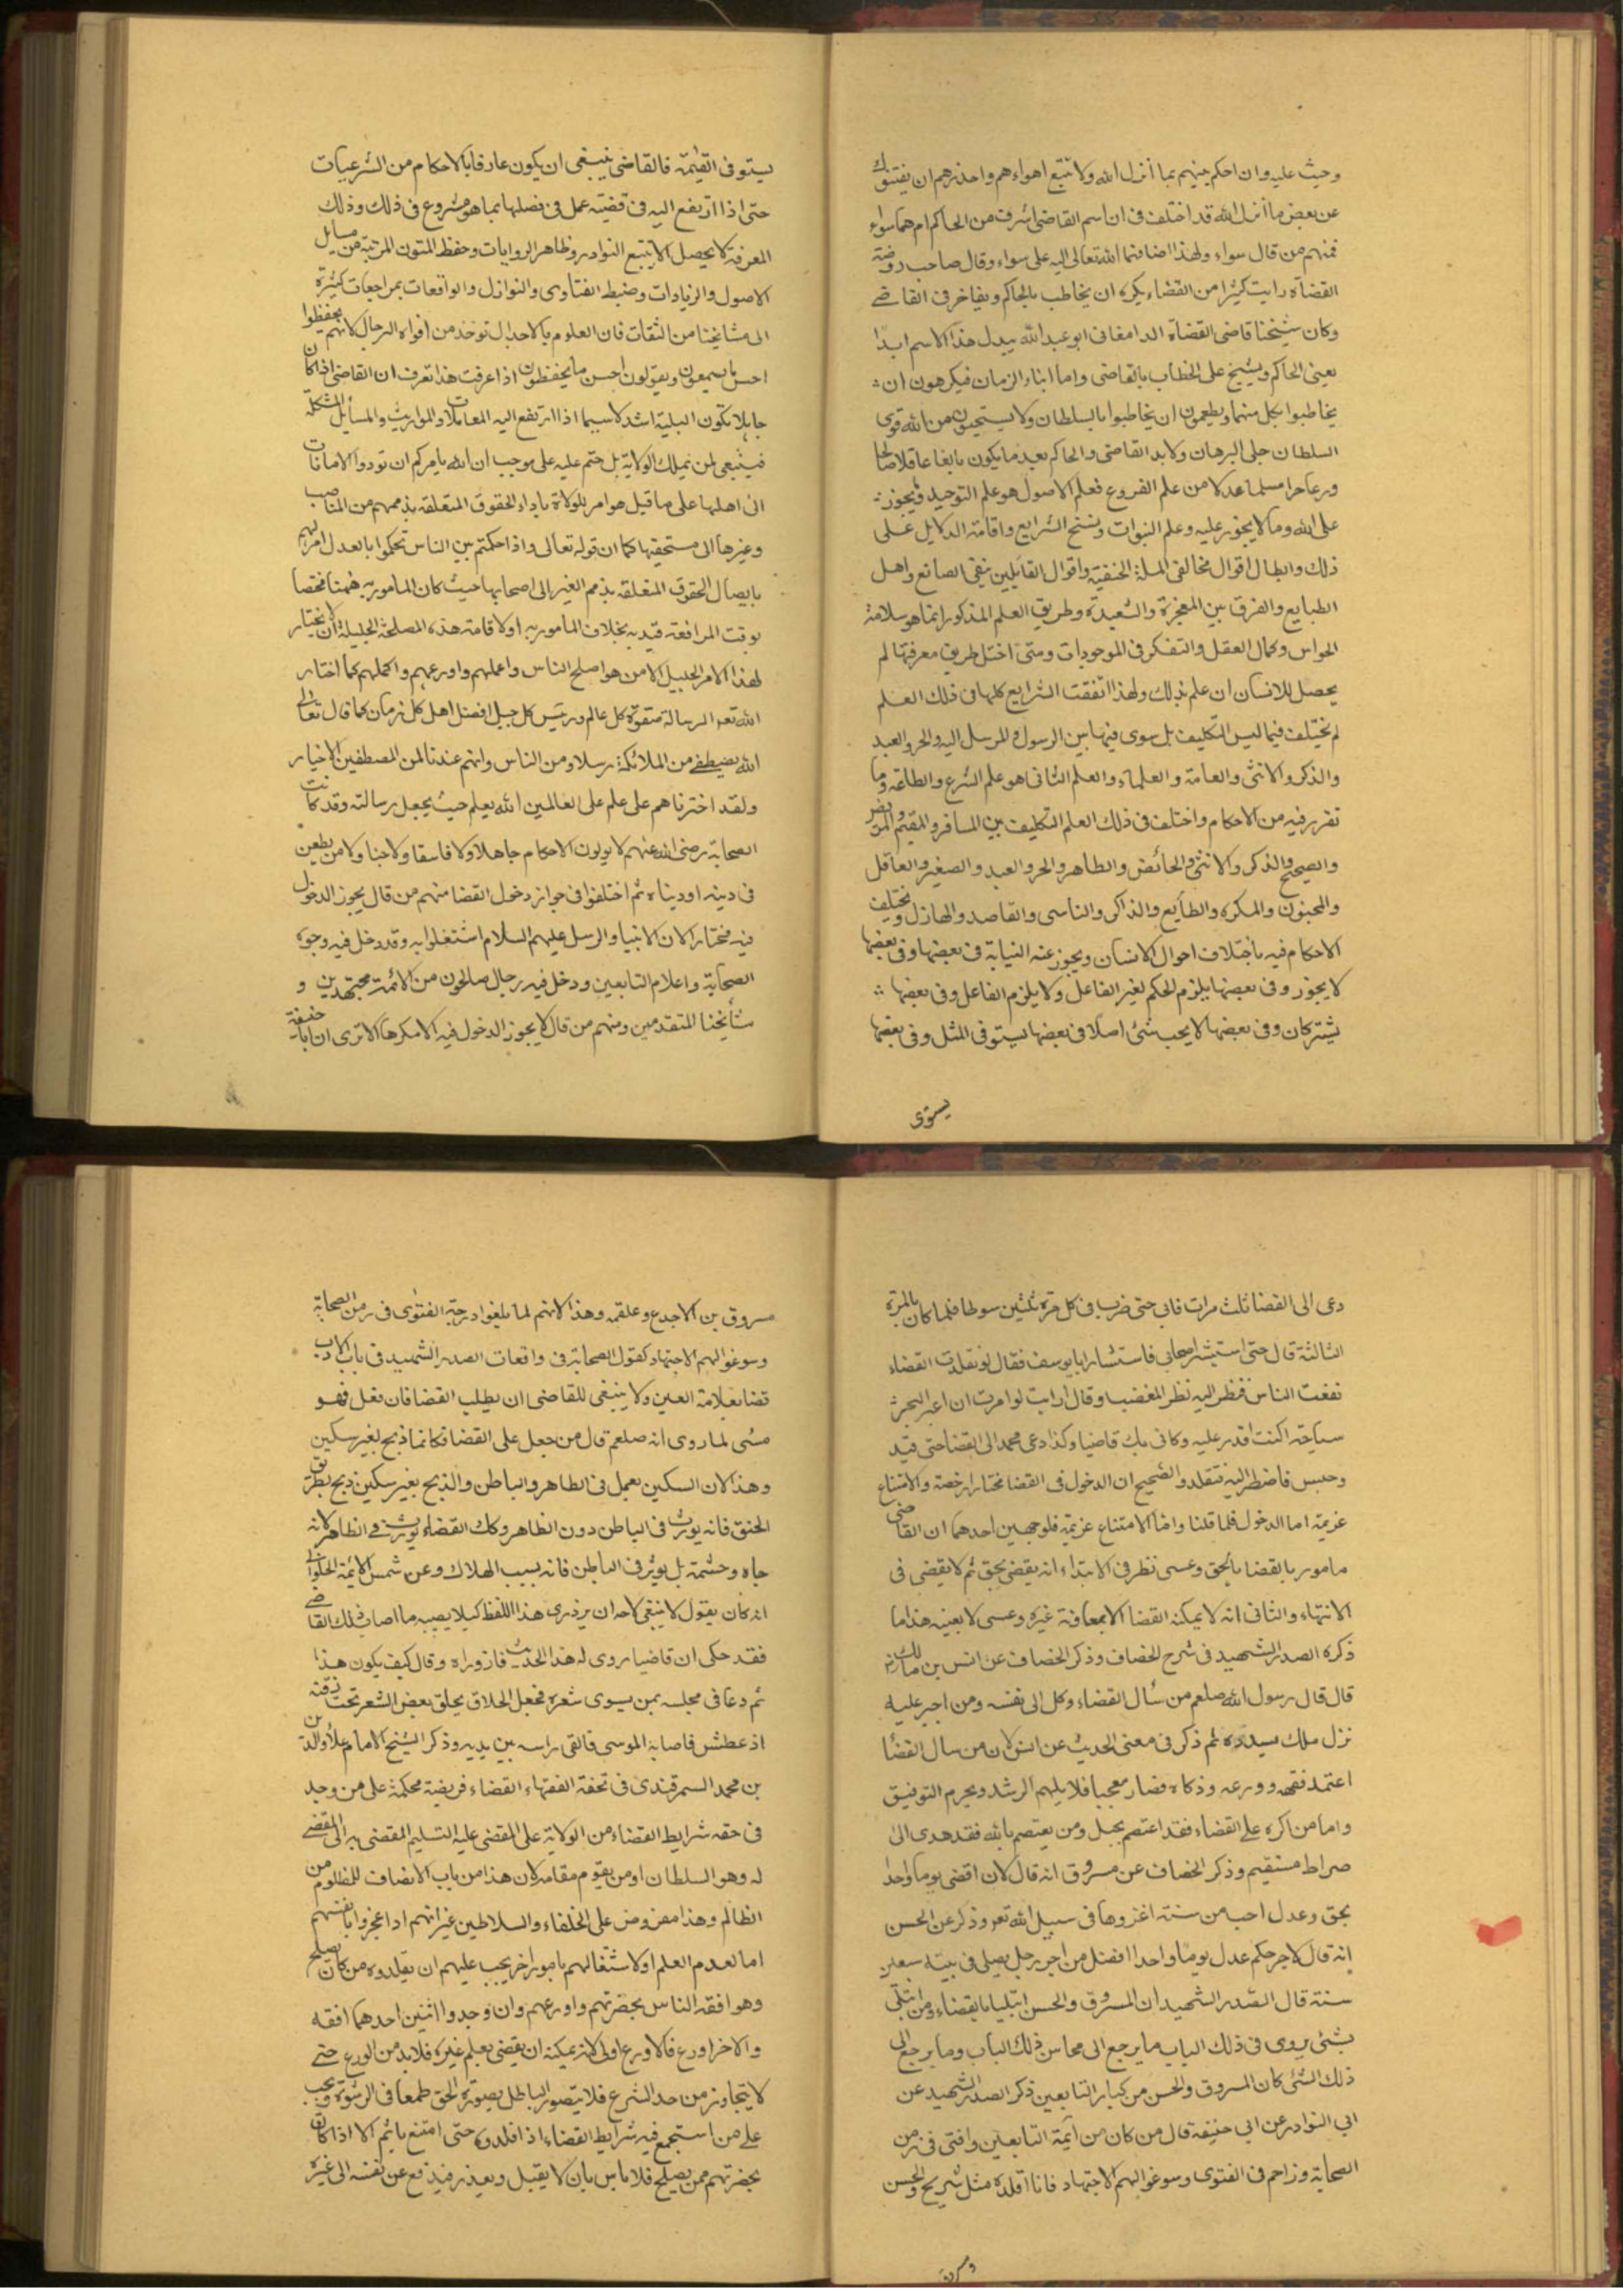 وحيث عليه وان احكم بينهم بما أنزل الله ولا تتبع اهواءهم واحذرهم ان يفتنوك
عن بعض ما أنزل الله قد اختلف فى ان اسم القاضى اشرف من الحاكم ام هما سواء
فمنهم من قال سواء ولهذا اضافهما الله تعالى اليه على سواء وقال صاحب روضة
القضاة رايت كثيرا من القضاء يكره ان يخاطب بالحاكم ويفاخر فى القاضے
وكان شيخنا قاضى القضاة الدامغانى ابو عبد الله يبدل هذا الاسم ابدا
يعنى الحاكم ويشيح على الخطاب بالقاضى واما ابناء الزمان فيكرهون ان
يخاطبوا بكل منهما ويطعمون ان يخاطبوا بالسلطان ولا يستحيون من الله قوى
السلطان جلى البرهان ولا بد القاضى والحاكم بعد ما يكون بالغا عاقلا صالحا
ورعا حرا مسلما عدلا من علم الفروع فعلم الاصول هو علم التوحيد ويجوز
على الله وما لا يجوز عليه وعلم النبوات ونسخ الشرايع واقامة الدلايل على
ذلك وابطال اقوال مخالفى الملة الحنفية واقوال القايلين بنفى الصانع واهل
الطبايع والفرق بين المعجزة والشعبدة وطريق العلم المذكور انما هو سلامة
الحواس وكمال العقل والتفكر فى الموجودات ومتى اختل طريق معرفتها لم
يحصل للانسان ان علم بذلك ولهذا اتفقت الشرايع كلها فى ذلك العلم
لم يختلف فيما ليس التكليف بل سوى فيها بين الرسول والمرسل اليه والحر والعبد
والذكر والانثى والعامة والعلماء والعلم الثانى هو علم الشرع والطاعة وما
تقرر فيه من الاحكام واختلف فى ذلك العلم التكليف بين المسافر والمقيم والمريض
والصحيح والذكر والانثى والحائض والطاهر والحر والعبد والصغير والعاقل
والمجنون والمكره والطايع والذاكر والناسى والقاصد والهازل ويختلف
الاحكام فيه باختلاف احوال الانسان ويجوز عنه النيابة فى بعضها وفى بعضها
لا يجوز وفى بعضها يلزم الحكم لغير الفاعل ولا يلزم الفاعل وفى بعضها
يشتركان وفى بعضها لا يجب شئ اصلا فى بعضها يستوفى المثل وفى بعضها
يستوى
يستوفى القيمة فالقاضى ينبغى ان يكون عارفا بالاحكام من الشرعيات
حتى اذا ارتفع اليه فى قضيته عمل فى فصلها بما هو مشروع فى ذلك وذلك
المعرفة لا يحصل الا بتتبع النوادر وظاهر الروايات وحفظ المتون المرتبة من مسايل
الاصول والزيادات وضبط الفتاوى والنوازل والواقعات بمراجعات كثيرة
الى مشايخنا من الثقات فان العلوم يا لاجدال توخذ من افواه الرجال لانهم يحفظوا
احسن ما يسمعون ويقولون احسن ما يحفظون اذا عرفت هذا تعرف ان القاضى اذا كان
جاهلا تكون البلية اشد لا سيما اذا ارتفع اليه المعاملات والمواريث والمسايل المشكلة
فينبغى لمن يملك الولاية بل حتم عليه على موجب ان الله يامركم ان تودوا الامانات
الى اهلها على ما قيل هو امر للولاة باداء الحقوق المتعلقة بذممهم من المناصب
وغيرها الى مستحقيها كما ان قوله تعالى واذا حكمتم بين الناس تحكموا بالعدل امر لهم
بايصال الحقوق المتعلقة بذمم الغير الى اصحابها حيث كان المامور به ههنا مختصا
بوقت المرافعة قيد به بخلاف المامور به اولا قامة هذه المصلحة الجليلة ان لا يختيار
لهذا الامر الجليل الا من هو اصلح الناس واعلمهم واورعهم واكملهم كما اختار
الله تعه الرسالة صفوة كل عالم ورئيس كل جيل افضل اهل كل زمان كما قال تعالى
الله يصطفے من الملائكة رسلا ومن الناس وانهم عندنا لمن المصطفين الاخيار
ولقد اخترناهم على علم على العالمين الله يعلم حيث يجعل رسالته وقد كانت
الصحابة رضى الله عنهم لا يولون الاحكام جاهلا ولا فاسقا ولا جبنا ولا من يطعن
فى دينه او ديناه ثم اختلفوا فى جواز دخول القضا منهم من قال يجوز الدخول
فيه مختارا لان الانبيا والرسل عليهم السلام اشتغلوا به وقد دخل فيه وجوه
الصحابة واعلام التابعين ودخل فيه رجال صالحون من الائمة مجتهدين و
مشايخنا المتقدمين ومنهم من قال لا يجوز الدخول فيه الا مكرها الا ترى ان ابا حنيفة
دعى الى القضا ثلث مرات فابى حتى ضرب فى كل مرة ثلثين سوطا فلما كان بالمرة
الثالثة قال حتى استشير اصحابى فاستشار ابا يوسف فقال لو تقلدت القضاء
نفعت الناس فنظر اليه نظر المغضب وقال ارايت لو امرت ان اعبر البحر
سباحة اكنت اقدر عليه وكانى بك قاضيا وكذا دعى محمد الى القضا حتى قيد
وحبس فاضطر اليه فتقلد والصحيح ان الدخول فى القضا مختارا رخصة والامتناع
عزيمة اما الدخول فلما قلنا واما الامتناع عزيمة فلوجهين احدهما ان القاضى
مامور بالقضا بالحق وعسى نظر فى الابتداء انه يقضى بحق ثم لا يقضى فى
الانتهاء والثانى انه لا يمكنه القضا الا بمعاونة غيره وعسى لا يعينه هذا ما
ذكره الصدر الشهيد فى شرح الخصاف وذكر الخصاف عن انس بن مالك
قال قال رسول الله صلعم من سأل القضاء وكل الى نفسه ومن اجبر عليه
نزل ملك يسدده ثم ذكر فى معنى الحديث عن انس لان من سال القضا
اعتمد فقهه وورعه وذكاه فصار معجبا فلا يلهم الرشد ويحرم التوفيق
واما من اكره على القضاء فقد اعتصم بحبل ومن يعتصم بالله فقد هدى الى
صراط مستقيم وذكر الخصاف عن مسروق انه قال لان اقضى يوما واحدا
بحق وعدل احب من سنة اغزوها فى سبيل الله تعه وذكر عن الحسن
انه قال لاجر حكم عدل يوما واحدا افضل من اجر رجل يصلى فى بيته سبعين
سنة قال الصدر الشهيد ان المسروق والحسن ابتليا بالقضاء ومن ابتلى
بشئ يروى فى ذلك الباب ما يرجع الى محاسن ذلك الباب وما يرجع الى
ذلك الشئ كان المسروق والحسن من كبار التابعين ذكر الصدر الشهيد عن
ابى النوادر عن ابى حنيفة قال من كان من أيمة التابعين وافتى فى زمن
الصحابة وزاحم فى الفتوى وسوغوا لهم الاجتهاد فانا اقلده مثل شريح والحسن
مسروق بن الاجدع وعلقمه وهذا لانهم لما بلغوا درجة الفتوى فى زمن الصحابة
وسوغوا لهم الاجتهاد كقول الصحابة فى واقعات الصدر الشهيد فى باب الادب
قضا بعلامة العين ولا ينبغى للقاضى ان يطلب القضا فان فعل فهو
مسئى لما روى انه صلعم قال من جعل على القضا فكانما ذبح بغير سكين
وهذا لان السكين يعمل فى الظاهر والباطن والذبح بغير سكين ذبح بطريق
الخنق فانه يوثر فى الباطن دون الظاهر وكذلك القضاء لا يوثر فى الظاهر لانه
جاه وحشمة بل يوثر فى الباطن فانه بسبب الهلاك وعن شمس الايمة الحلوانى
انه كان يقول لا ينبغى لاحد ان يزدرى هذا اللفظ كيلا يصيبه ما اصاب ذلك القاضے
فقد حكى ان قاضيا روى له هذا الحديث فازوراه وقال كيف يكون هذا
ثم دعا فى مجلسه بمن يسوى شعره فجعل الحلاق يحلق بعض الشعر تحت ذقنه
اذ عطش فاصابه الموسى فالقى راسه بين يديه وذكر الشيخ الامام علاء الدين
بن محمد السمرقندى فى تحفة الفقهاء القضاء فريضة محكمة على من وجد
فى حقه شرايط القضاء من الولاية على المقضى عليه التسليم المقضى به الى المقضے
له وهو السلطان او من يقوم مقامه لان هذا من باب الانصاف للمظلوم من
الظالم وهذا مفروض على الخلفاء والسلاطين غير انهم اذا عجزوا بانفسهم
اما لعدم العلم او لاشتغالهم بامور اخر يجب عليهم ان يقلدوه من كان يصلح
وهو افقه الناس بحضرتهم واورعهم وان وجدوا اثنين احدهما افقه
والاخر اورع فالاورع اولى لانه يمكنه ان يقضى بعلم غيره فلا بد من الورع حتے
لا يتجاوز من حد الشرع فلا يتصور الباطل بصورة الحق طمعا فى الرشوة ويجب
على من استجمع فيه شرايط القضاء اذا قلدوه حتى امتنع ياثم الا اذا كان
بحضرتهم ممن يصلح فلا باس بان لا يقبل ويعذر فيدفع عن نفسه الى غيره